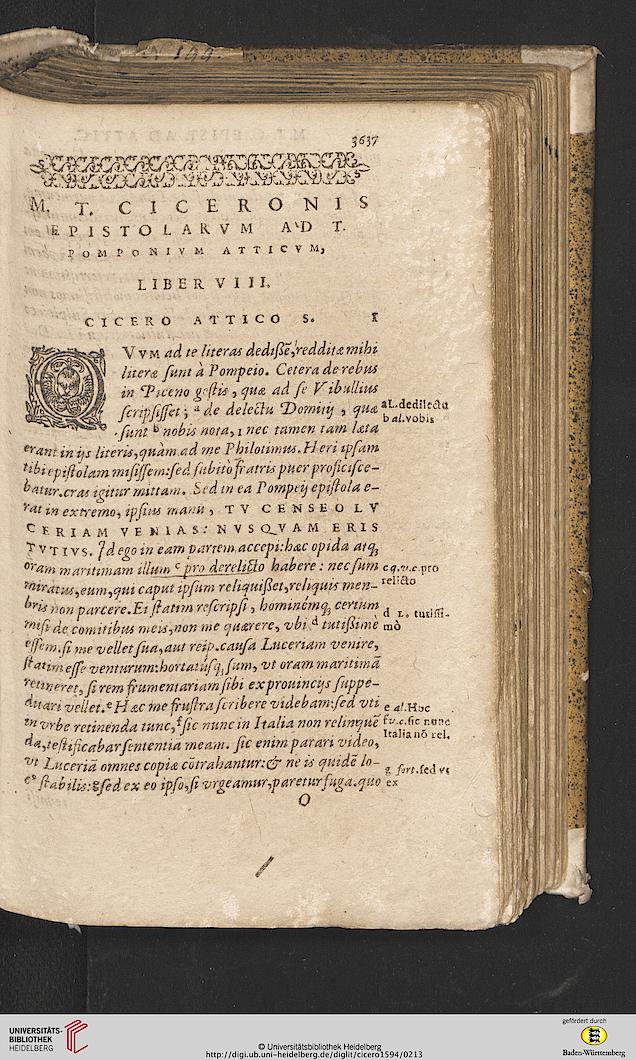 3637
M. T. CICERONIS
EPISTOLARVM AD T.
POMPONIVM ATTICVM,
LIBER VIII.
CICERO ATTICO S. I
QVVM ad te literas dedißẽ, redditæ mihi
literæ sunt à Pompeio. Cetera de rebus
in Piceno gestis, quæ ad se Vibullius
scripsisset; ª de delectu Domitij, quæ
sunt ᵇ nobis nota, nec tamen tam læta
erant in ijs literis, quàm ad me Philotimus. Heri ipsam
tibi epistolam misissem: sed subitò fratris puer proficisce-
batur. cras igitur mittam. Sed in ea Pompeij epistola e-
rat in extremo, ipsius manu, TV CENSEO LV
CERIAM VENIAS: NVSQVAM ERIS
TVTIVS. Id ego in eam partem accepi: hæc opida atq;
oram maritimam illum ᶜ pro derelicto habere: nec sum
miratus, eum, qui caput ipsum reliquißet, reliquis mem-
bris non parcere. Ei statim rescripsi, hominémq; certum
misi de comitibus meis, non me quærere, vbi ᵈ tutißimè
essem. si me vellet sua, aut reip. causa Luceriam venire,
statim esse venturum: hortatúsq; sum, vt oram maritimã
retineret, si rem frumentariam sibi ex prouincijs suppe-
ditari vellet. ᵉ Hæc me frustra scribere videbam: sed vti
in vrbe retinenda tunc, ᶠ sic nunc in Italia non relinquẽ
da, testificabar sententiã meam. sic enim parari video,
vt Luceriã omnes copiæ cõtrahantur: & ne is quidẽ lo-
cꝰ stabilis: ᵍ sed ex eo ipso, si vrgeamur, paretur fuga. quo
O
a L. dedilectu
b al. vobis
c q.v.c. pro
relicto
d L. tutissi-
mò
e al. Hoc
f v.c. sic nunc
Italia nõ rel.
g fort. sed vt
ex
UNIVERSITÄTS-
BIBLIOTHEK
HEIDELBERG
© Universitätsbibliothek Heidelberg
http://digi.ub.uni-heidelberg.de/diglit/cicero1594/0213
gefördert durch
Baden-Württemberg